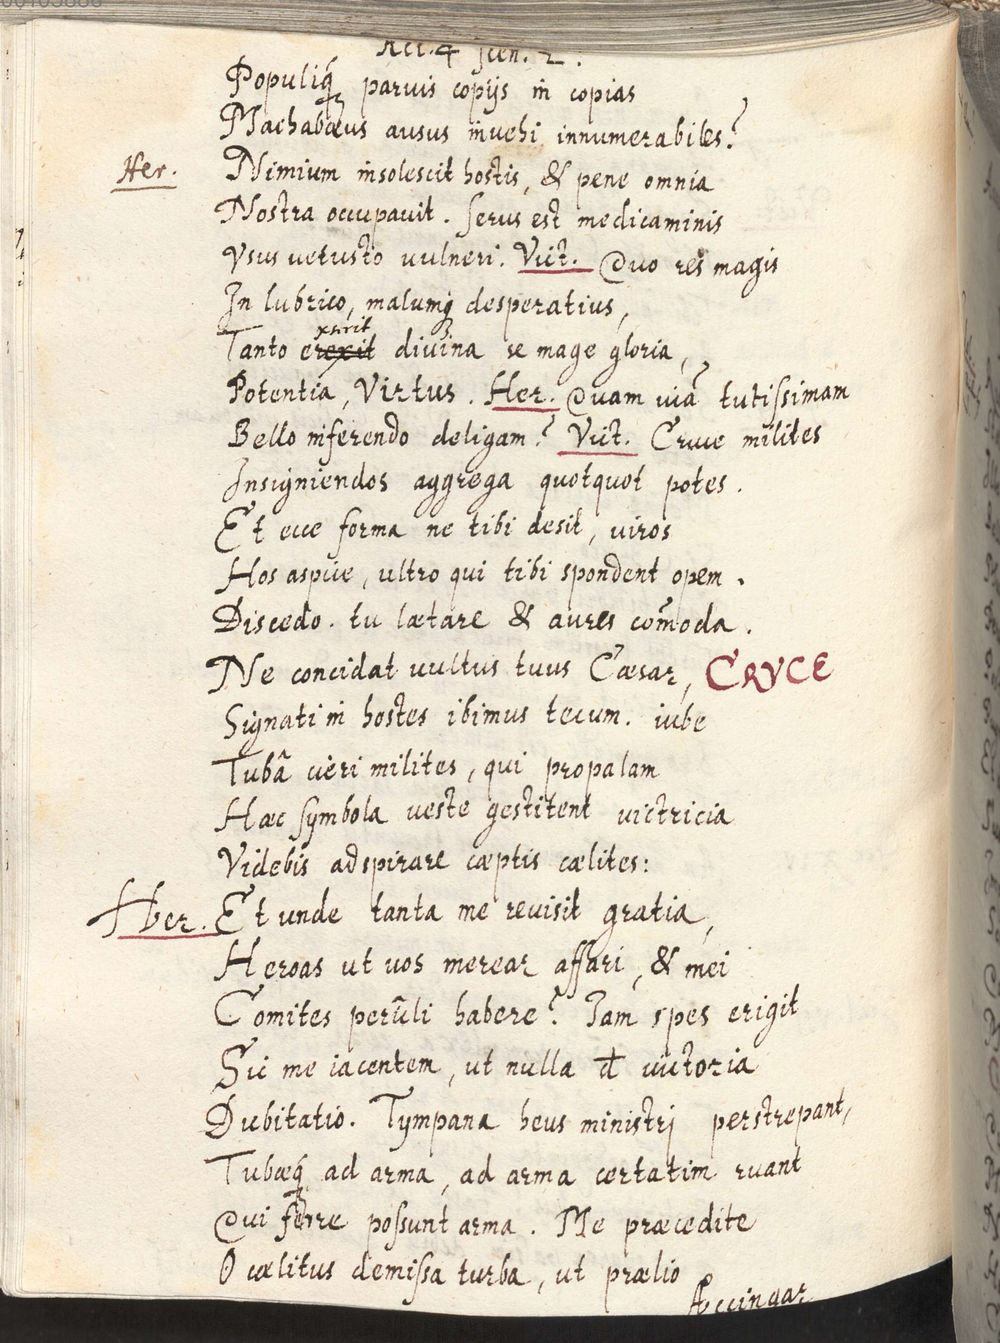 Act. 4 Scen. 2.
Populiq́ paruis copijs in copias
Machabæus ausus inuehi innumerabiles?
Her. Nimium insolescit hostis, & pene omnia
Nostra occupauit. Serus est medicaminis
Vsus uetusto uulneri. Vict. Quo res magis
In lubrico, malumq́ desperatius,
Tanto erexit xerit diuina se mage gloria,
Potentia, Virtus. Her. Quam uiâ tutissimam
Bello inferendo deligam? Vict. Cruce milites
Insigniendos aggrega quotquot potes.
Et ecce forma ne tibi desit, uiros
Hos aspice, ultro qui tibi spondent opem.
Discedo. tu lætare & aures com̃oda.
Ne concidat uultus tuus Cæsar, CRVCE
Signati in hostes ibimus tecum. iube
Tubâ cieri milites, qui propalam
Hæc symbola ueste gestitent uictricia
Videbis adspirare cæptis cælites:
Her. Et unde tanta me reuisit gratia,
Heroas ut uos merear affari, & mei
Comites peric̃li habere? Iam spes erigit
Sic me iacentem, ut nulla đ uictoria
Dubitatio. Tympana heus ministri perstrepant,
Tubæq́ ad arma, ad arma certatim ruant
Qui ferre possunt arma. Me præcedite
O cælitus demissa turba, ut prælio
Accingar